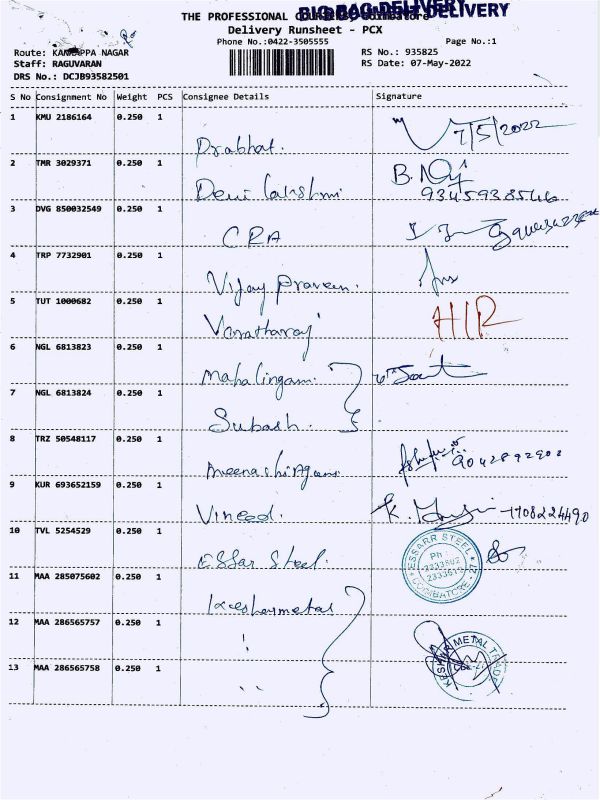 THE PROFESSIONAL COURIERS, Coimbatore
BIG BAG DELIVERY
Delivery Runsheet - PCX
Phone No.:0422-3505555 Page No.:1
Route: KANUAPPA NAGAR RS No.: 935825
Staff: RAGUVARAN RS Date: 07-May-2022
DRS No.: DCJB93582501
S No Consignment No Weight PCS Consignee Details Signature
1 KMU 2186164 0.250 1 Prabhat. 7/5/2022
2 TMR 3029371 0.250 1 Devi Lakshmi B.
3 DVG 850032549 0.250 1 CRA
4 TRP 7732901 0.250 1 Vijay Praveen.
5 TUT 1000682 0.250 1 Varatharaj HIR
6 NGL 6813823 0.250 1 Mahalingam.
7 NGL 6813824 0.250 1 Subash.
8 TRZ 50548117 0.250 1
9 KUR 693652159 0.250 1 Vinood. K.
10 TVL 5254529 0.250 1 Essar Steel.
ESSARR STEEL
Ph :
COIMBATORE - 27
11 MAA 285075602 0.250 1 Keesharmetal
12 MAA 286565757 0.250 1
13 MAA 286565758 0.250 1
METAL TRADE